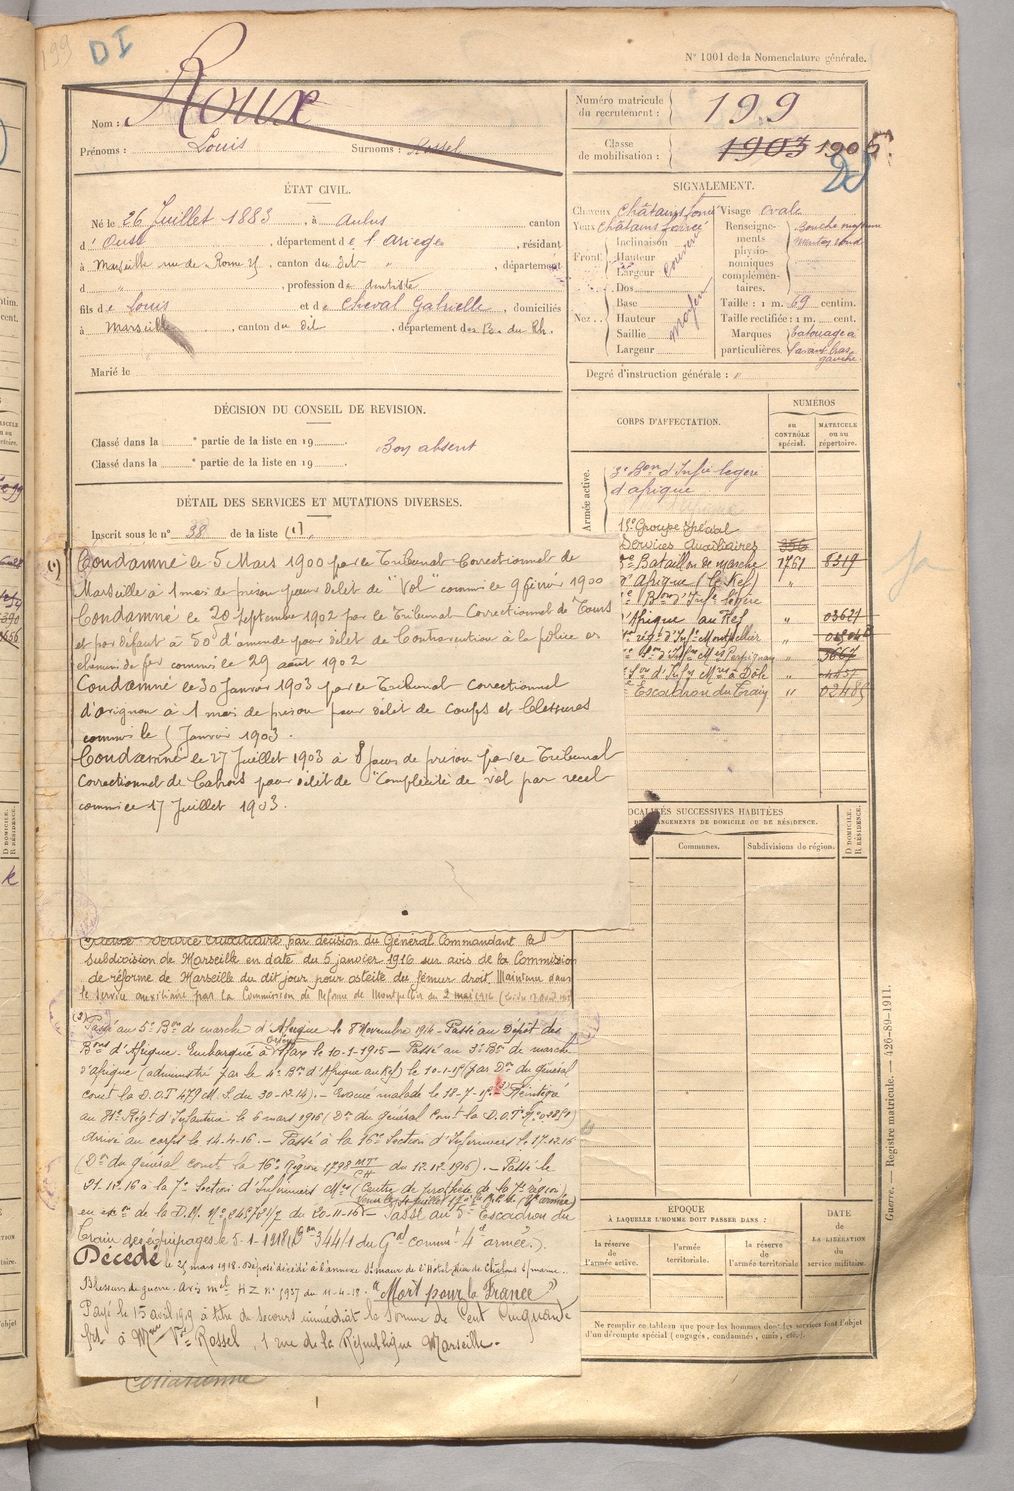 199
DI
N° 1001 de la Nomenclature générale.
Nom : Roux
Prénoms : Louis Surnoms : Rossel
Numéro matricule du recrutement : 199
Classe de mobilisation : 1903 1905
ÉTAT CIVIL.
Né le 26 Juillet 1883, à Aulus canton
d'Oust, département de l'Ariège, résidant
à Marseille rue de Rome 25, canton du dit, département
d " , profession de dentiste
fils de Louis et de Cheval Gabrielle, domiciliés
à Marseille, canton du dit, département des B. du Rh.
Marié le
SIGNALEMENT.
Cheveux châtains foncé Visage ovale
Yeux châtains foncé
Front : Inclinaison
Hauteur
Largeur
couvert
Nez : Dos
Base
Hauteur
Saillie
Largeur
moyen
Renseignements physionomiques complémentaires. Bouche moyenne
menton rond
Taille : 1 m. 69 centim.
Taille rectifiée : 1 m. cent.
Marques particulières. tatouage à
l'avant bras
gauche
Degré d'instruction générale : "
DÉCISION DU CONSEIL DE REVISION.
Classé dans la e partie de la liste en 19 .
Classé dans la e partie de la liste en 19 .
Bon absent
DÉTAIL DES SERVICES ET MUTATIONS DIVERSES.
Inscrit sous le n° 38 de la liste (1)
CORPS D'AFFECTATION.
NUMÉROS
AU CONTRÔLE spécial.
MATRICULE ou au répertoire.
Armée active.
3e Bon d'Infie légère
d'afrique
15e Groupe Spécial
Services Auxiliaires 356
Bataillon de marche 1761 8319
d'Afrique (Le Kef) "
Bon d'Infie légère
d'Afrique au Kef " 03621
régt d'Infie Montpellier "
Perpignan " 3667
à Dôle " 4437
Escadron du Train " 02485
(1) Condamné le 5 Mars 1900 par le Tribunal Correctionnel de
Marseille à 1 mois de prison pour délit de "Vol" commis le 9 février 1900
Condamné le 20 septembre 1902 par le Tribunal Correctionnel de Tours
et par défaut à 50f d'amende pour délit de Contravention à la police es
chemins de fer commis le 29 août 1902
Condamné le 30 Janvier 1903 par le Tribunal Correctionnel
d'avignon à 1 mois de prison pour délit de Coups et Blessures
commis le Janvier 1903.
Condamné le 27 Juillet 1903 à 8 jours de prison par le Tribunal
Correctionnel de Cahors pour délit de "Complicité de vol par recel
commis le 17 Juillet 1903.
LOCALITÉS SUCCESSIVES HABITÉES
CHANGEMENTS DE DOMICILE OU DE RÉSIDENCE.
Communes.
Subdivisions de région.
D DOMICILE.
R RÉSIDENCE.
service auxiliaire par décision du Général Commandant la
subdivision de Marseille en date du 5 janvier 1916 sur avis de la Commission
de réforme de Marseille du dit jour pour ostéite du fémur droit. Maintenu dans
le service auxiliaire par la Commission de Réforme de Montpellier du 2 mai 1916
(2) Passé au 5e Bon de marche d'Afrique le 8 Novembre 1914 - Passé au Dépôt des
Bons d'Afrique. Embarqué à Sfax le 10-1-1915 - Passé au 3e Bn de marche
d'afrique (administré par le 4e Bn d'Afrique au Kef) le 10-1-15 (par Don du général
comt la D.O.T 479 M.S. du 30-12-14). - Evacué malade le 18-7-15. Réintégré
au 81e Régt d'Infanterie le 6 mars 1916 (Don du général Comt la D.O.T.
arrivé au corps le 14-4-16. - Passé à la 16e Section d'Infirmiers le 17-12-16
(Don du général comt la 16e Région 1798 MT/CH du 12-12-1916). - Passé le
21-12-16 à la 7e Section d'Infirmiers Mres (Centre de prothèse de la 7e région)
du 20-11-16 - Passé au 5e Escadron du
Train des équipages le 5-1-1918 (Don 344/1 du Gal commt 4e armée).
Décédé le 25 mars 1918. Déposé décédé à l'annexe St Maur de l'Hôtel Dieu de Châlons s/marne.
Blessures de guerre. Avis mel HZ n° 5937 du 11-4-18. "Mort pour la France"
Payé le 15 avril 1919 à titre de secours immédiat la Somme de Cent Cinquante
frs à Mme Vve Rossel, 1 rue de la République Marseille.
ÉPOQUE
À LAQUELLE L'HOMME DOIT PASSER DANS :
la réserve de l'armée active.
l'armée territoriale.
la réserve de l'armée territoriale
DATE de LA LIBÉRATION du service militaire.
Ne remplir ce tableau que pour les hommes dont les services font l'objet
d'un décompte spécial (engagés, condamnés, omis, etc.).
Guerre. — Registre matricule. — 426-89-1911.